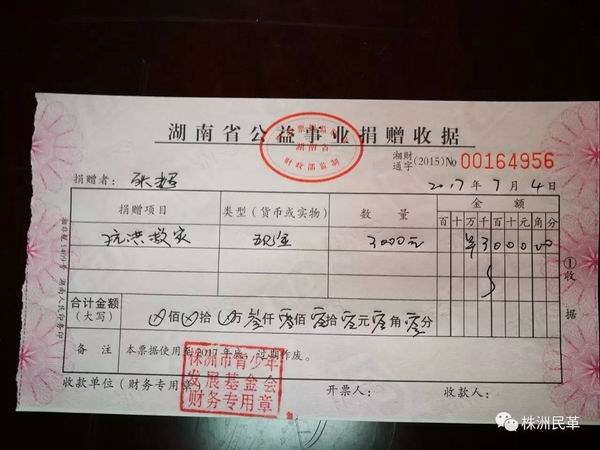 湖南省公益事业捐赠收据
湖南省
财政部监制
湘财通字 (2015) No 00164956
捐赠者： 张
2017年7月4日
捐赠项目 类型（货币或实物） 数量 金额
百十万千百十元角分
抗洪救灾 现金 3000元 ¥3000 00
合计金额（大写） 佰 拾 万 叁仟 零佰 零拾 零元 零角 零分
备注 本票据使用至2017年底，过期作废。
收款单位（财务专用章） 开票人： 收款人：
株洲市青少年
发展基金会
财务专用章
①收据
湖南人民印务印
株洲民革